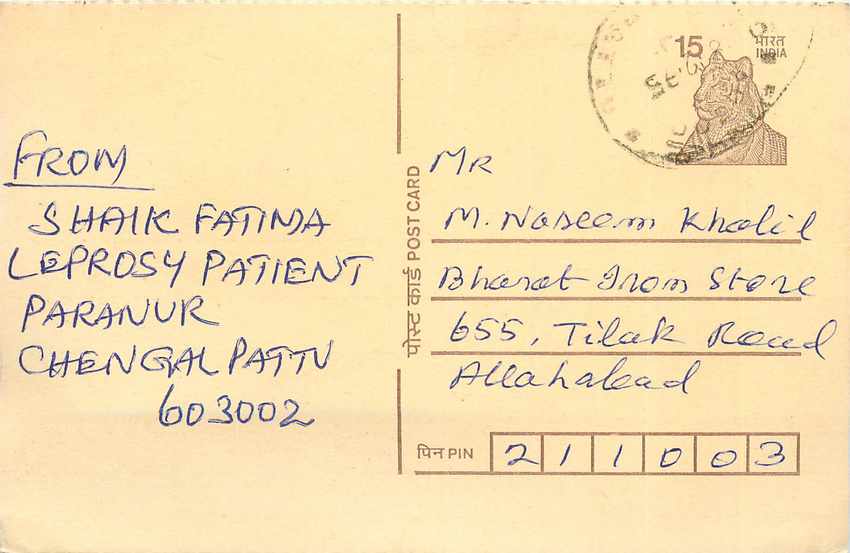 FROM
SHAIK FATIMA
LEPROSY PATIENT
PARANUR
CHENGALPATTU
603002
पोस्ट कार्ड POST CARD
15
भारत
INDIA
MR
M. Naseem Khalil
Bharat Iron Store
655, Tilak Road
Allahabad
पिन PIN 211003